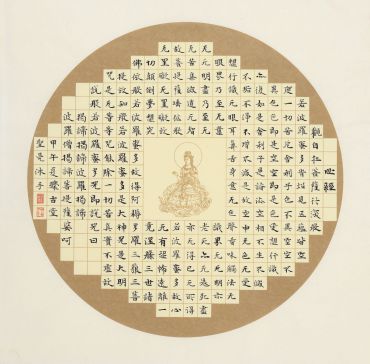 心經
觀自在菩薩行深般
若波羅蜜多時照見五蘊皆空
度一切苦厄舍利子色不異空空不
異色色即是空空即是色受想行識
亦復如是舍利子是諸法空相不生不滅
不垢不淨不增不減是故空中无色无受
想行識无眼耳鼻舌身意无色聲香味觸法无
眼界乃至无意識界无无明亦
无无明盡乃至无老死亦无老死盡
无苦集滅道无智亦无得以无所得
故菩提薩埵依般若波羅蜜多故心
无罣礙无罣礙故无有恐怖遠離一
切顛倒夢想究竟涅槃三世諸
佛依般若波羅蜜多故得阿耨多羅三藐三菩
提故知般若波羅蜜多是大神咒是大明
咒是无等等咒能除一切苦真實不虛故
說般若波羅蜜多咒即說咒曰
揭諦揭諦波羅揭諦
波羅僧揭諦菩提薩婆呵
甲午夏 古堂
聖曼沐手